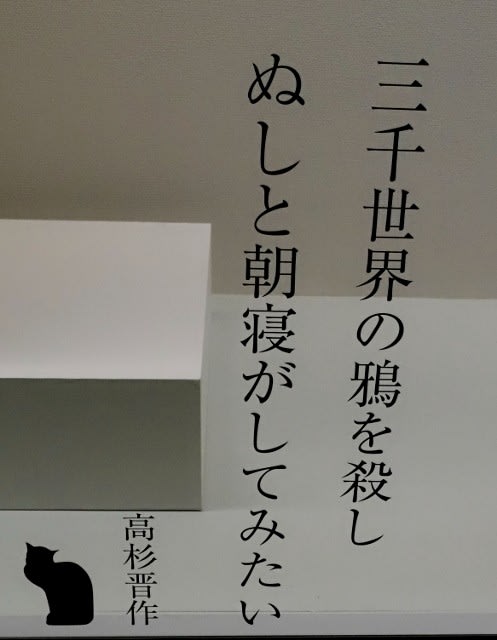 三千世界の鴉を殺し
ぬしと朝寝がしてみたい
高杉晋作